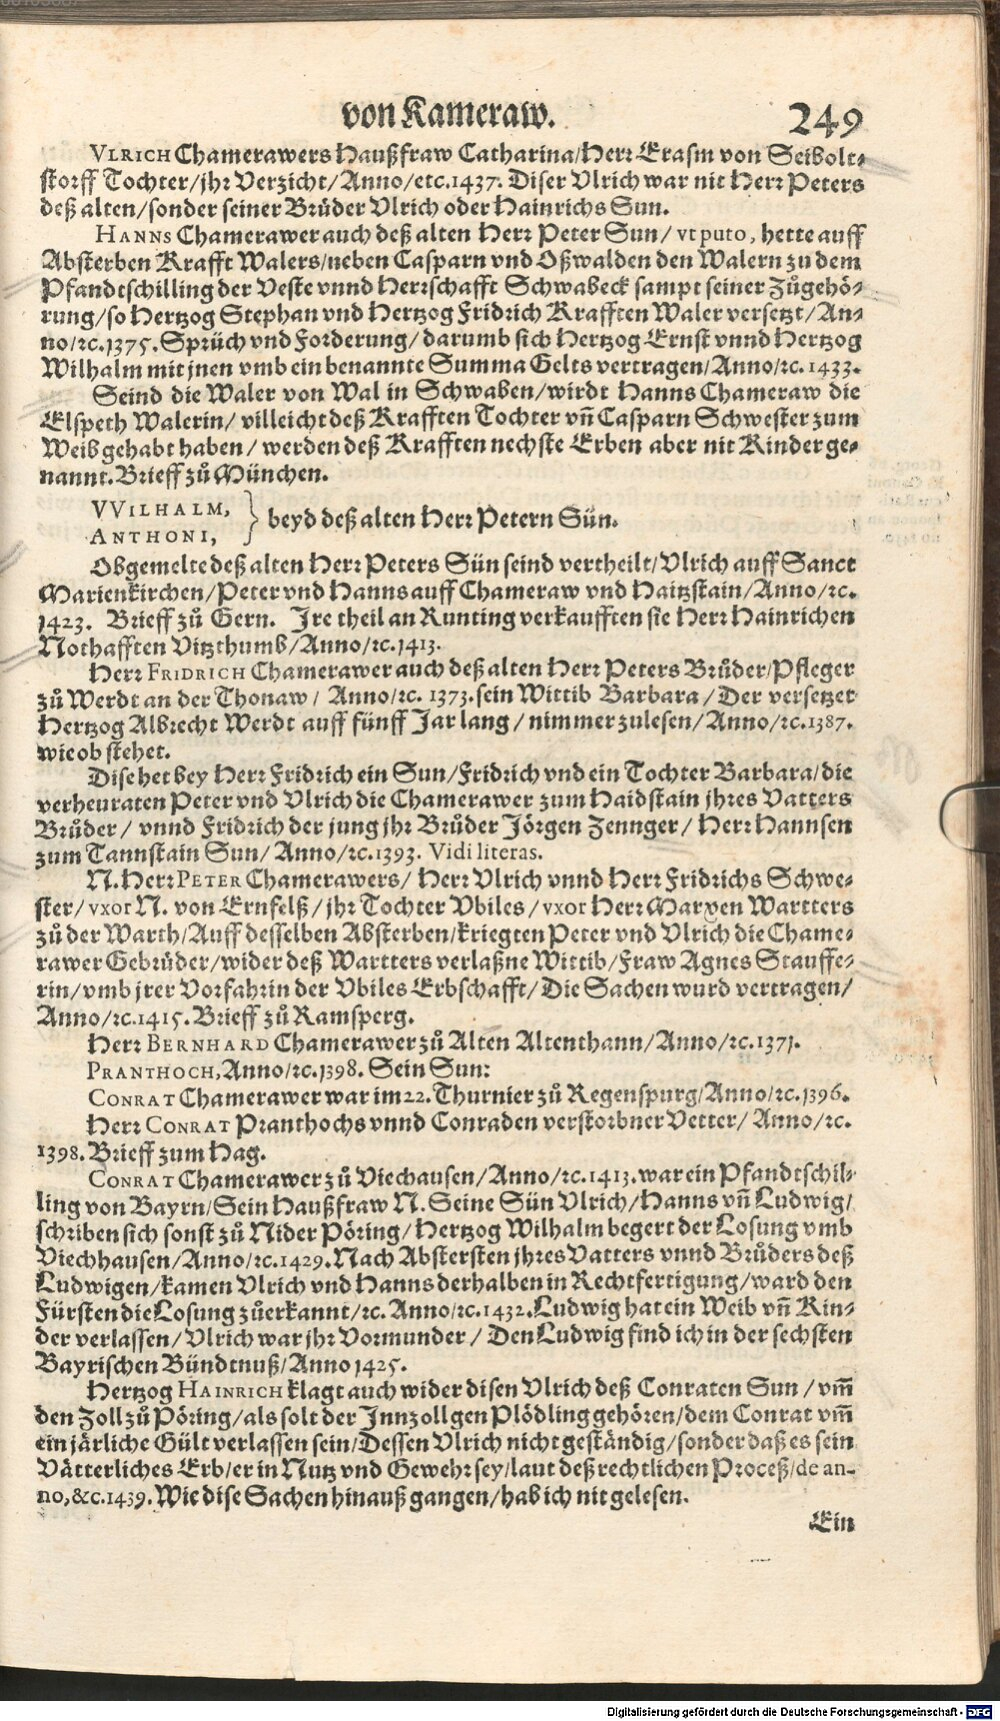 von Kameraw. 249
VLRICH Chamerawers Haußfraw Catharina/Herr Erasm von Seibolt-
storff Tochter/jhr Verzicht/Anno/etc.1437. Diser Vlrich war nit Herr Peters
deß alten/sonder seiner Brüder Vlrich oder Hainrichs Sun.
HANNS Chamerawer auch deß alten Herr Peter Sun/ vt puto, hette auff
Absterben Krafft Walers/neben Casparn vnd Oßwalden den Walern zu dem
Pfandtschilling der Veste vnnd Herrschafft Schwabeck sampt seiner Zůgehö-
rung/so Hertzog Stephan vnd Hertzog Fridrich Krafften Waler versetzt/An-
no/ꝛc.1375. Sprüch vnd Forderung/darumb sich Hertzog Ernst vnnd Hertzog
Wilhalm mit jnen vmb ein benannte Summa Gelts vertragen/Anno/ꝛc. 1433.
Seind die Waler von Wal in Schwaben/wirdt Hanns Chameraw die
Elspeth Walerin/villeicht deß Krafften Tochter vn̄ Casparn Schwester zum
Weib gehabt haben/ werden deß Krafften nechste Erben aber nit Kinder ge-
nannt. Brieff zů München.
VVILHALM,
ANTHONI, } beyd deß alten Herr Petern Sün.
Obgemelte deß alten Herr Peters Sün seind vertheilt/Vlrich auff Sanct
Marienkirchen/Peter vnd Hanns auff Chameraw vnd Haitzstain/Anno/ꝛc.
1423. Brieff zů Gern. Ire theil an Runting verkaufften sie Herr Hainrichen
Nothafften Vitzthumb/Anno/ꝛc.1413.
Herr FRIDRICH Chamerawer auch deß alten Herr Peters Brůder/Pfleger
zů Werdt an der Thonaw/ Anno/ꝛc. 1373. sein Wittib Barbara/Der versetzet
Hertzog Albrecht Werdt auff fünff Jar lang/ nimmer zulesen/Anno/ꝛc.1387.
wie ob stehet.
Dise het bey Herr Fridrich ein Sun/Fridrich vnd ein Tochter Barbara/die
verheuraten Peter vnd Vlrich die Chamerawer zum Haidstain jhres Vatters
Brůder/ vnnd Fridrich der jung jhr Brůder Jörgen Zennger/ Herr Hannsen
zum Tannstain Sun/ Anno/ꝛc.1393. Vidi literas.
N. Herr PETER Chamerawers/ Herr Vlrich vnnd Herr Fridrichs Schwe-
ster/vxor N. von Ernfelß/jhr Tochter Vbiles/vxor Herr Marxen Wartters
zů der Warth/Auff desselben Absterben/kriegten Peter vnd Vlrich die Chame-
rawer Gebrüder/wider deß Wartters verlaßne Wittib/Fraw Agnes Stauffe-
rin/vmb jrer Vorfahrin der Vbiles Erbschafft/Die Sachen wurd vertragen/
Anno/ꝛc.1415. Brieff zů Ramsperg.
Herr BERNHARD Chamerawer zů Alten Altenthann/Anno/ꝛc.1371.
PRANTHOCH, Anno/ꝛc.1398. Sein Sun:
CONRAT Chamerawer war im 22. Thurnier zů Regenspurg/Anno/ꝛc.1396.
Herr CONRAT Pranthochs vnnd Conraden verstorbner Vetter/ Anno/ꝛc.
1398. Brieff zum Hag.
CONRAT Chamerawer zů Viechausen/Anno/ꝛc.1413. war ein Pfandtschil-
ling von Bayrn/Sein Haußfraw N. Seine Sün Vlrich/Hanns vn̄ Ludwig/
schriben sich sonst zů Nider Pöring/Hertzog Wilhalm begert der Losung vmb
Viechhausen/Anno/ꝛc.1429. Nach Abstersten jhres Vatters vnnd Brüders deß
Ludwigen/kamen Vlrich vnd Hanns derhalben in Rechtfertigung/ward den
Fürsten die Losung zůerkannt/ꝛc. Anno/ꝛc.1432. Ludwig hat ein Weib vn̄ Kin-
der verlassen/Vlrich war jhr Vormunder/ Den Ludwig find ich in der sechsten
Bayrischen Bündtnuß/Anno 1425.
Hertzog HAINRICH klagt auch wider disen Vlrich deß Conraten Sun/vm̄
den Zoll zů Pöring/als solt der Innzoll gen Plödling gehören/dem Conrat vm̄
ein järliche Gült verlassen sein/Dessen Vlrich nicht geständig/sonder daß es sein
Vätterliches Erb/er in Nutz vnd Gewehr sey/laut deß rechtlichen Proceß/de an-
no,&c.1439. Wie dise Sachen hinauß gangen/hab ich nit gelesen.
Ein
Digitalisierung gefördert durch die Deutsche Forschungsgemeinschaft - DFG